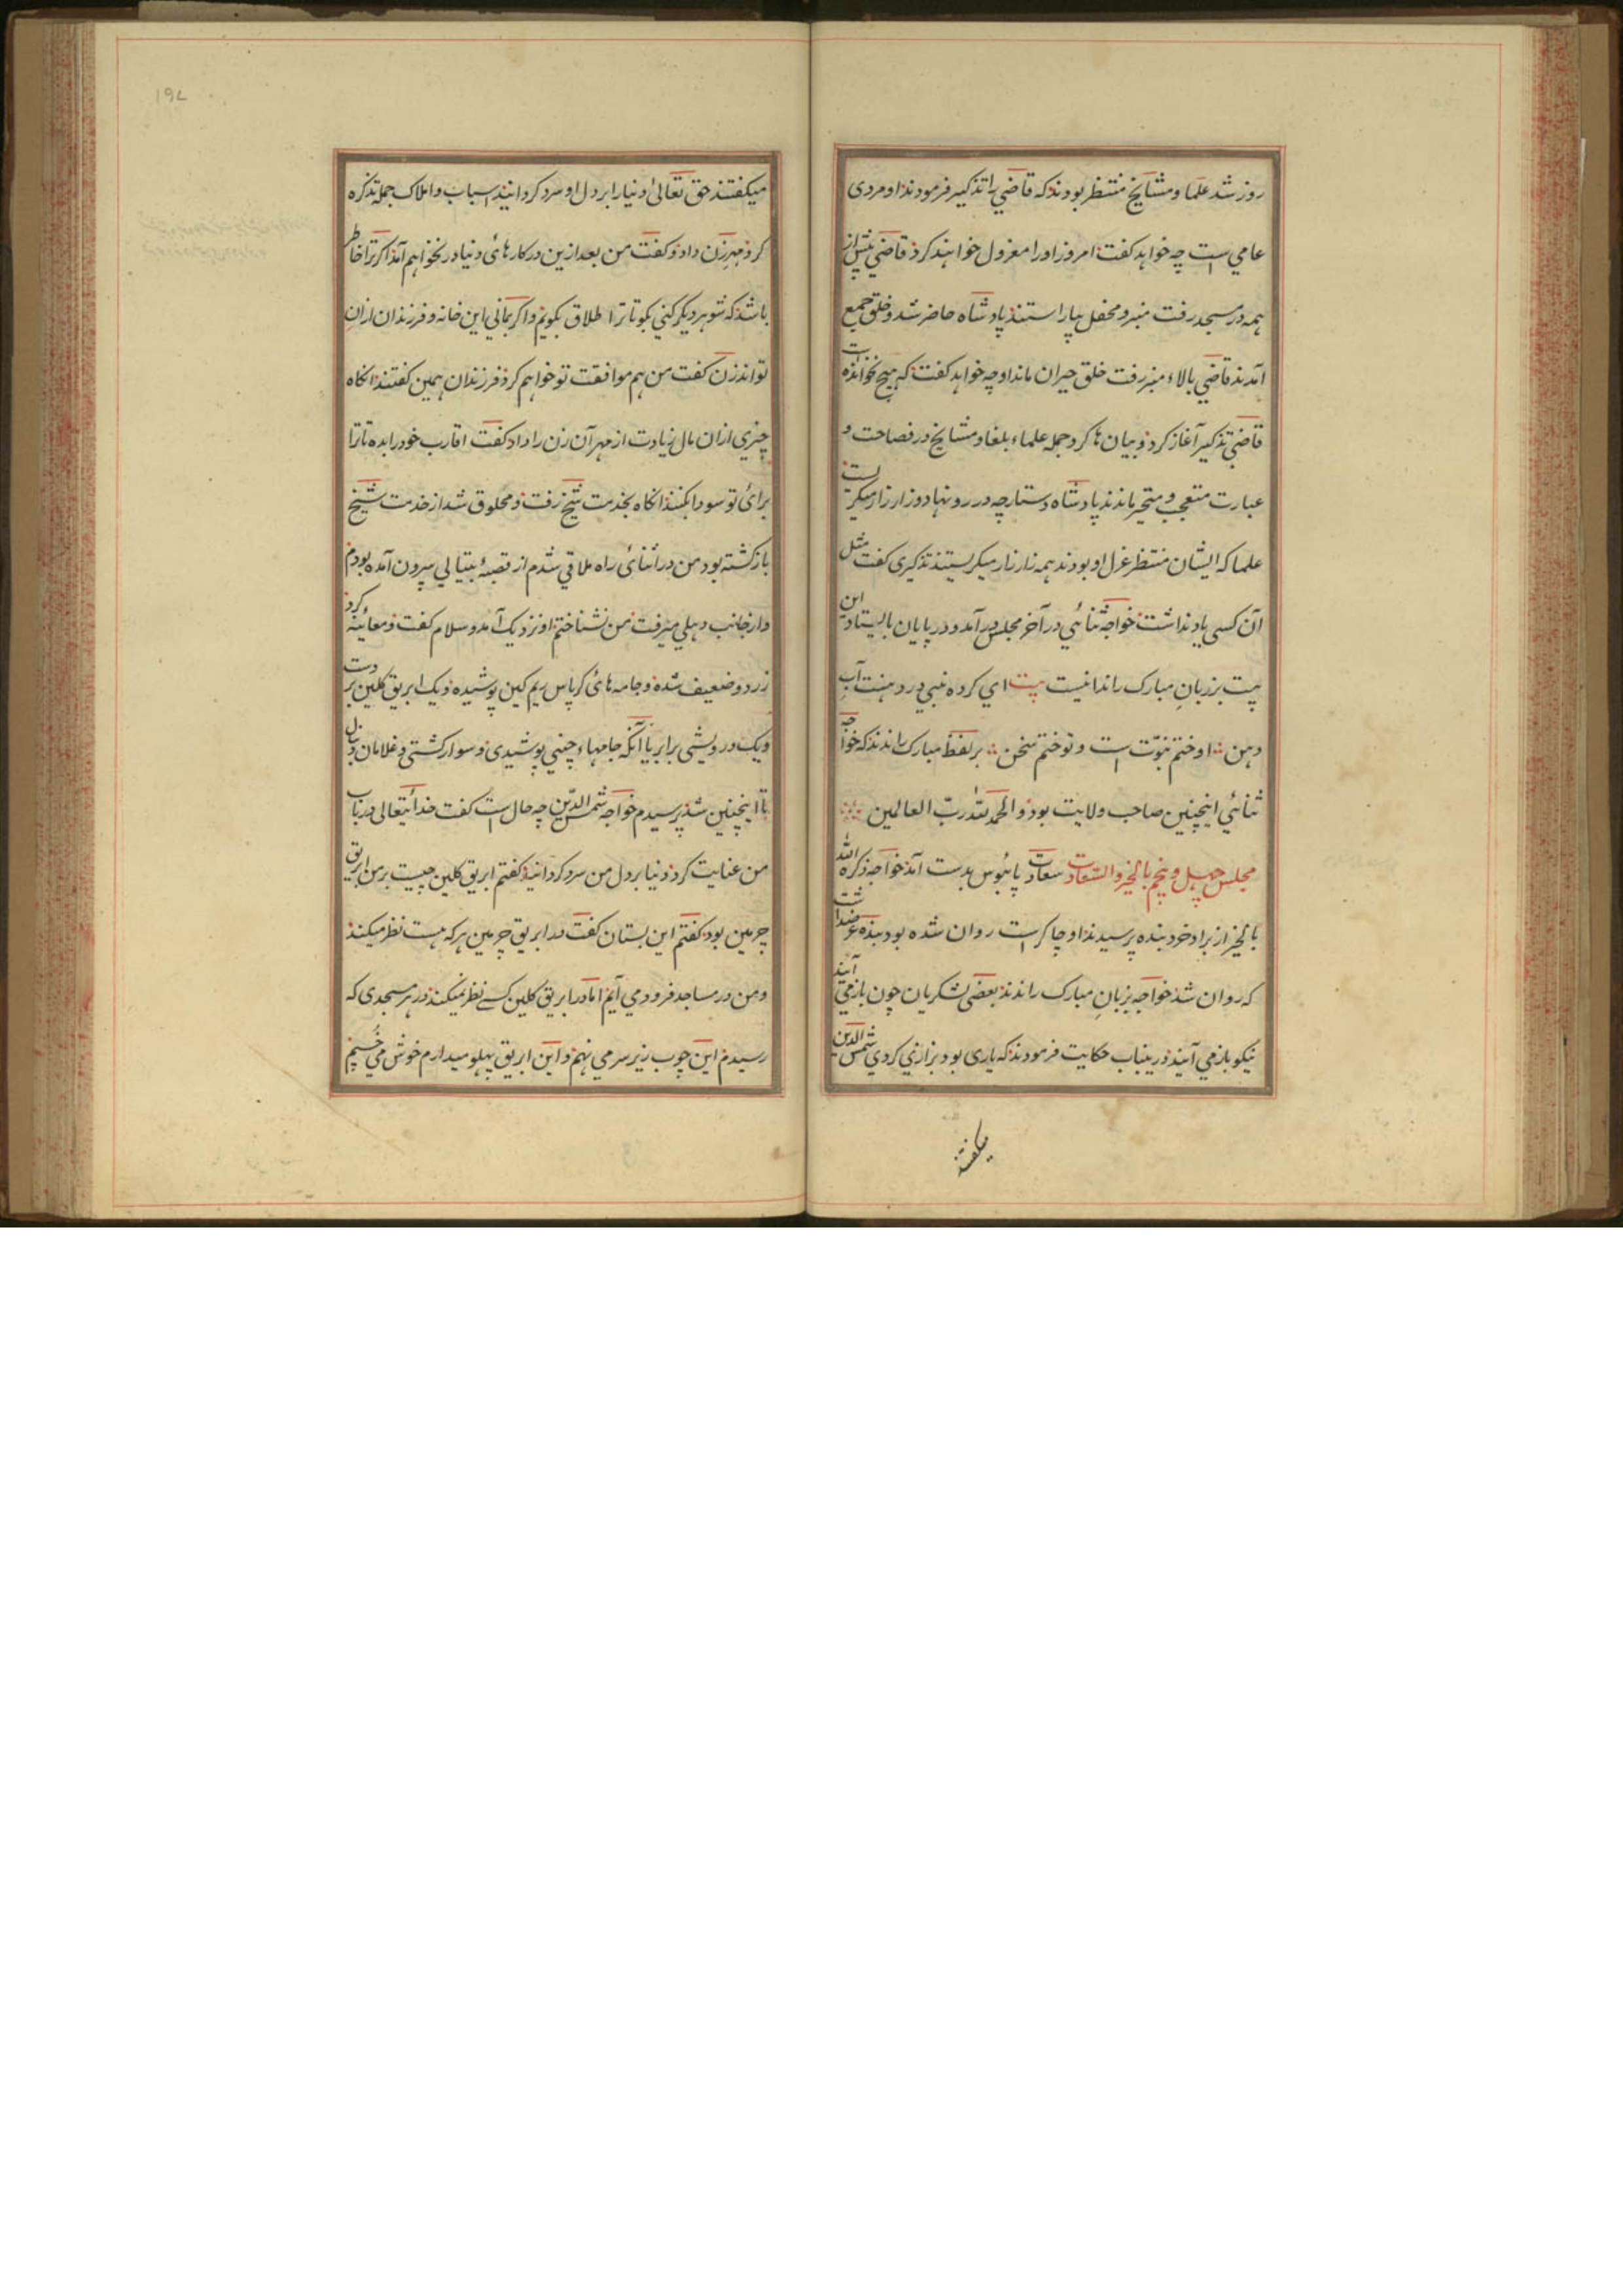 روز شد علما و مشایخ منتظر بودند که قاضی را تذکیر فرمودند او مردی
عامی است چه خواهد گفت امروز او را معزول خواهند کرد قاضی پیش از
همه در مسجد رفت منبر و محفل بیاراستند پادشاه حاضر شد و خلق جمع
آمدند قاضی بالاء منبر رفت خلق حیران ماند او چه خواهد گفت که هیچ نخوانده است
قاضی تذکیر آغاز کرد و بیان ها کرد جمله علماء بلغا و مشایخ در فصاحت و
عبارت متعجب و متحیر ماندند پادشاه دستارچه در رو نهاد و زار زار میگریست
علما که ایشان منتظر عزل او بودند همه زار زار میگریستند تذکیری گفت مثل
آن کسی یاد نداشت خواجه ثنائی در آخر مجلس در آمد و در پایان بایستاد این
بیت بر زبان مبارک راند اینست بیت ای کرده نبی در دهنت آب
دهن او ختم نبوت است و تو ختم سخن بر لفظ مبارک راندند که خواجه
ثنائی اینچنین صاحب ولایت بود والحمد لله رب العالمین
مجلس چهل و پنجم بالخیر والسعادت سعادت پائبوس بدست آمد خواجه ذکره الله
بالخیر از برادر خرد بنده پرسیدند او چاکر است روان شده بود بنده عرضداشت
که روان شد خواجه بزبان مبارک راندند بعضی لشکریان چون باز می آیند
نیکو باز می آیند درینباب حکایت فرمودند که یاری بود بزازی کردی شمس الدین
میگفتند
میگفتند حق تعالی دنیا را بر دل او سرد گردانید اسباب و املاک جمله تذکره
کرد مهر زن داد و گفت من بعد ازین در کارهائ دنیا در نخواهم آمد اگر ترا خاطر
باشد که شوهر دیگر کنی بگو تا ترا طلاق بگویم و اگر بمانی این خانه و فرزندان ازان
تواند زن گفت من هم موافقت تو خواهم کرد فرزندان همین گفتند انگاه
چیزی ازان مال زیادت از مهر آن زن را داد گفت اقارب خود را بده تا ترا
برائ تو سودا بکنند انگاه بخدمت شیخ رفت و محلوق شد از خدمت شیخ
باز گشته بود من در اثنائ راه ملاقی شدم از قصبهٔ بتیالی بیرون آمده بودم
و از جانب دهلی میرفت من نشناختم او نزدیک آمد و سلام گفت و معاینه کرد
زرد و ضعیف شده و جامه هائ کرپاس ریم گین پوشیده و یک ابریق گلین بر دست
و یک درویشی برابر یا آنکه جامهاء چینی پوشیدی و سوار گشتی و غلامان دنبال
تا اینچنین شد پرسیدم خواجه شمس الدین چه حال است گفت خدائیتعالی در باب
من عنایت کرد دنیا بر دل من سرد گردانید گفتم ابریق گلین چیست بر من ابریق
چرمین بود گفتم این بستان گفت در ابریق چرمین هر که هست نظر میکند
و من در مساجد فرود می آیم اما در ابریق گلین کسے نظر نمیکند در هر مسجدی که
رسیدم این چوب زیر سر می نهم و این ابریق پهلو میدارم خوش می خسپم